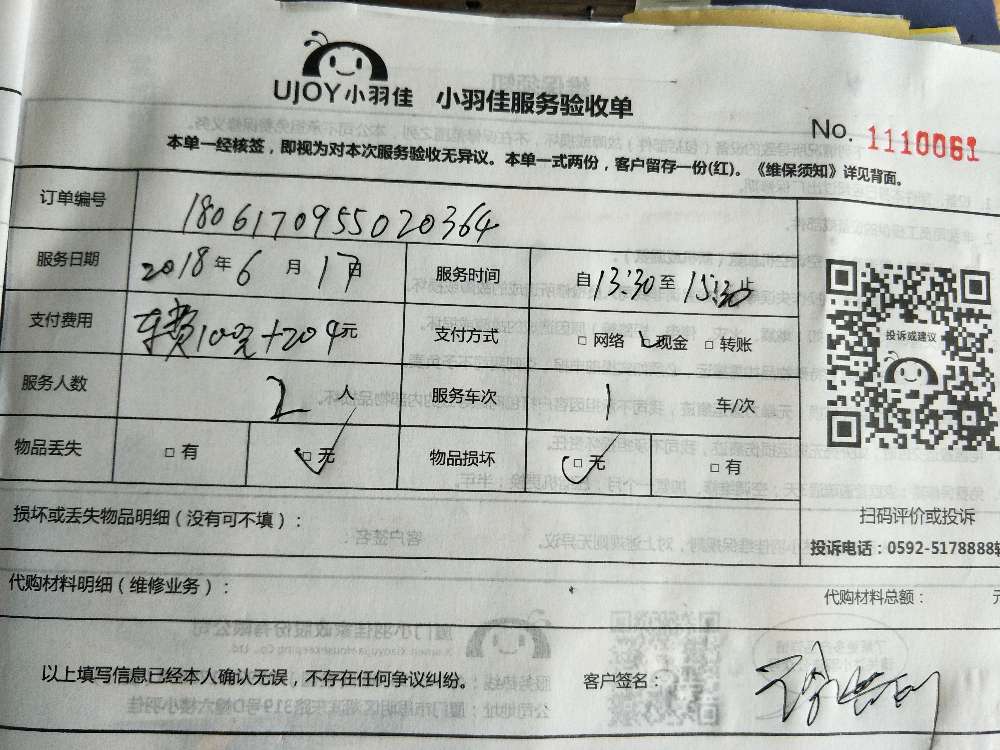 UJOY小羽佳 小羽佳服务验收单
No. 1110061
本单一经核签，即视为对本次服务验收无异议。本单一式两份，客户留存一份(红)。《维保须知》详见背面。
订单编号 1806170955020364
服务日期 2018年6月17日 服务时间 自13:30至15:30止
支付费用 车费10元+204元 支付方式 □网络 ☑现金 □转账
投诉或建议
服务人数 2人 服务车次 1 车/次
物品丢失 □有 ☑无 物品损坏 ☑无 □有
扫码评价或投诉
损坏或丢失物品明细（没有可不填）：
投诉电话：0592-5178888转
代购材料明细（维修业务）：
代购材料总额： 元
以上填写信息已经本人确认无误，不存在任何争议纠纷。 客户签名：